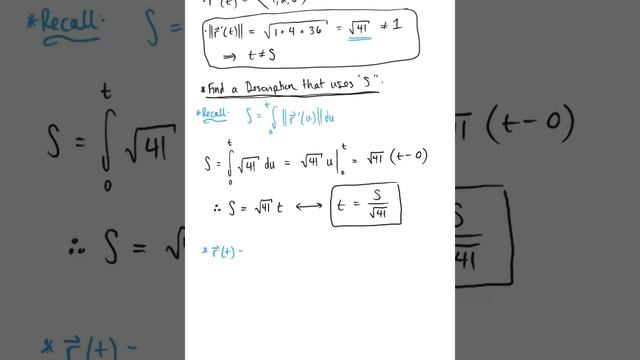 r⃗'(t) = ⟨1, 2, 6⟩
‖r⃗'(t)‖ = √(1+4+36) = √41 ≠ 1
⟹ t ≠ S
*Find a Description that uses "S".
*Recall: S = ∫ₐᵗ ‖r⃗'(u)‖ du
S = ∫₀ᵗ √41 du = √41 u |₀ᵗ = √41 (t-0)
∴ S = √41 t ⟷ t = S/√41
*r⃗(t) -